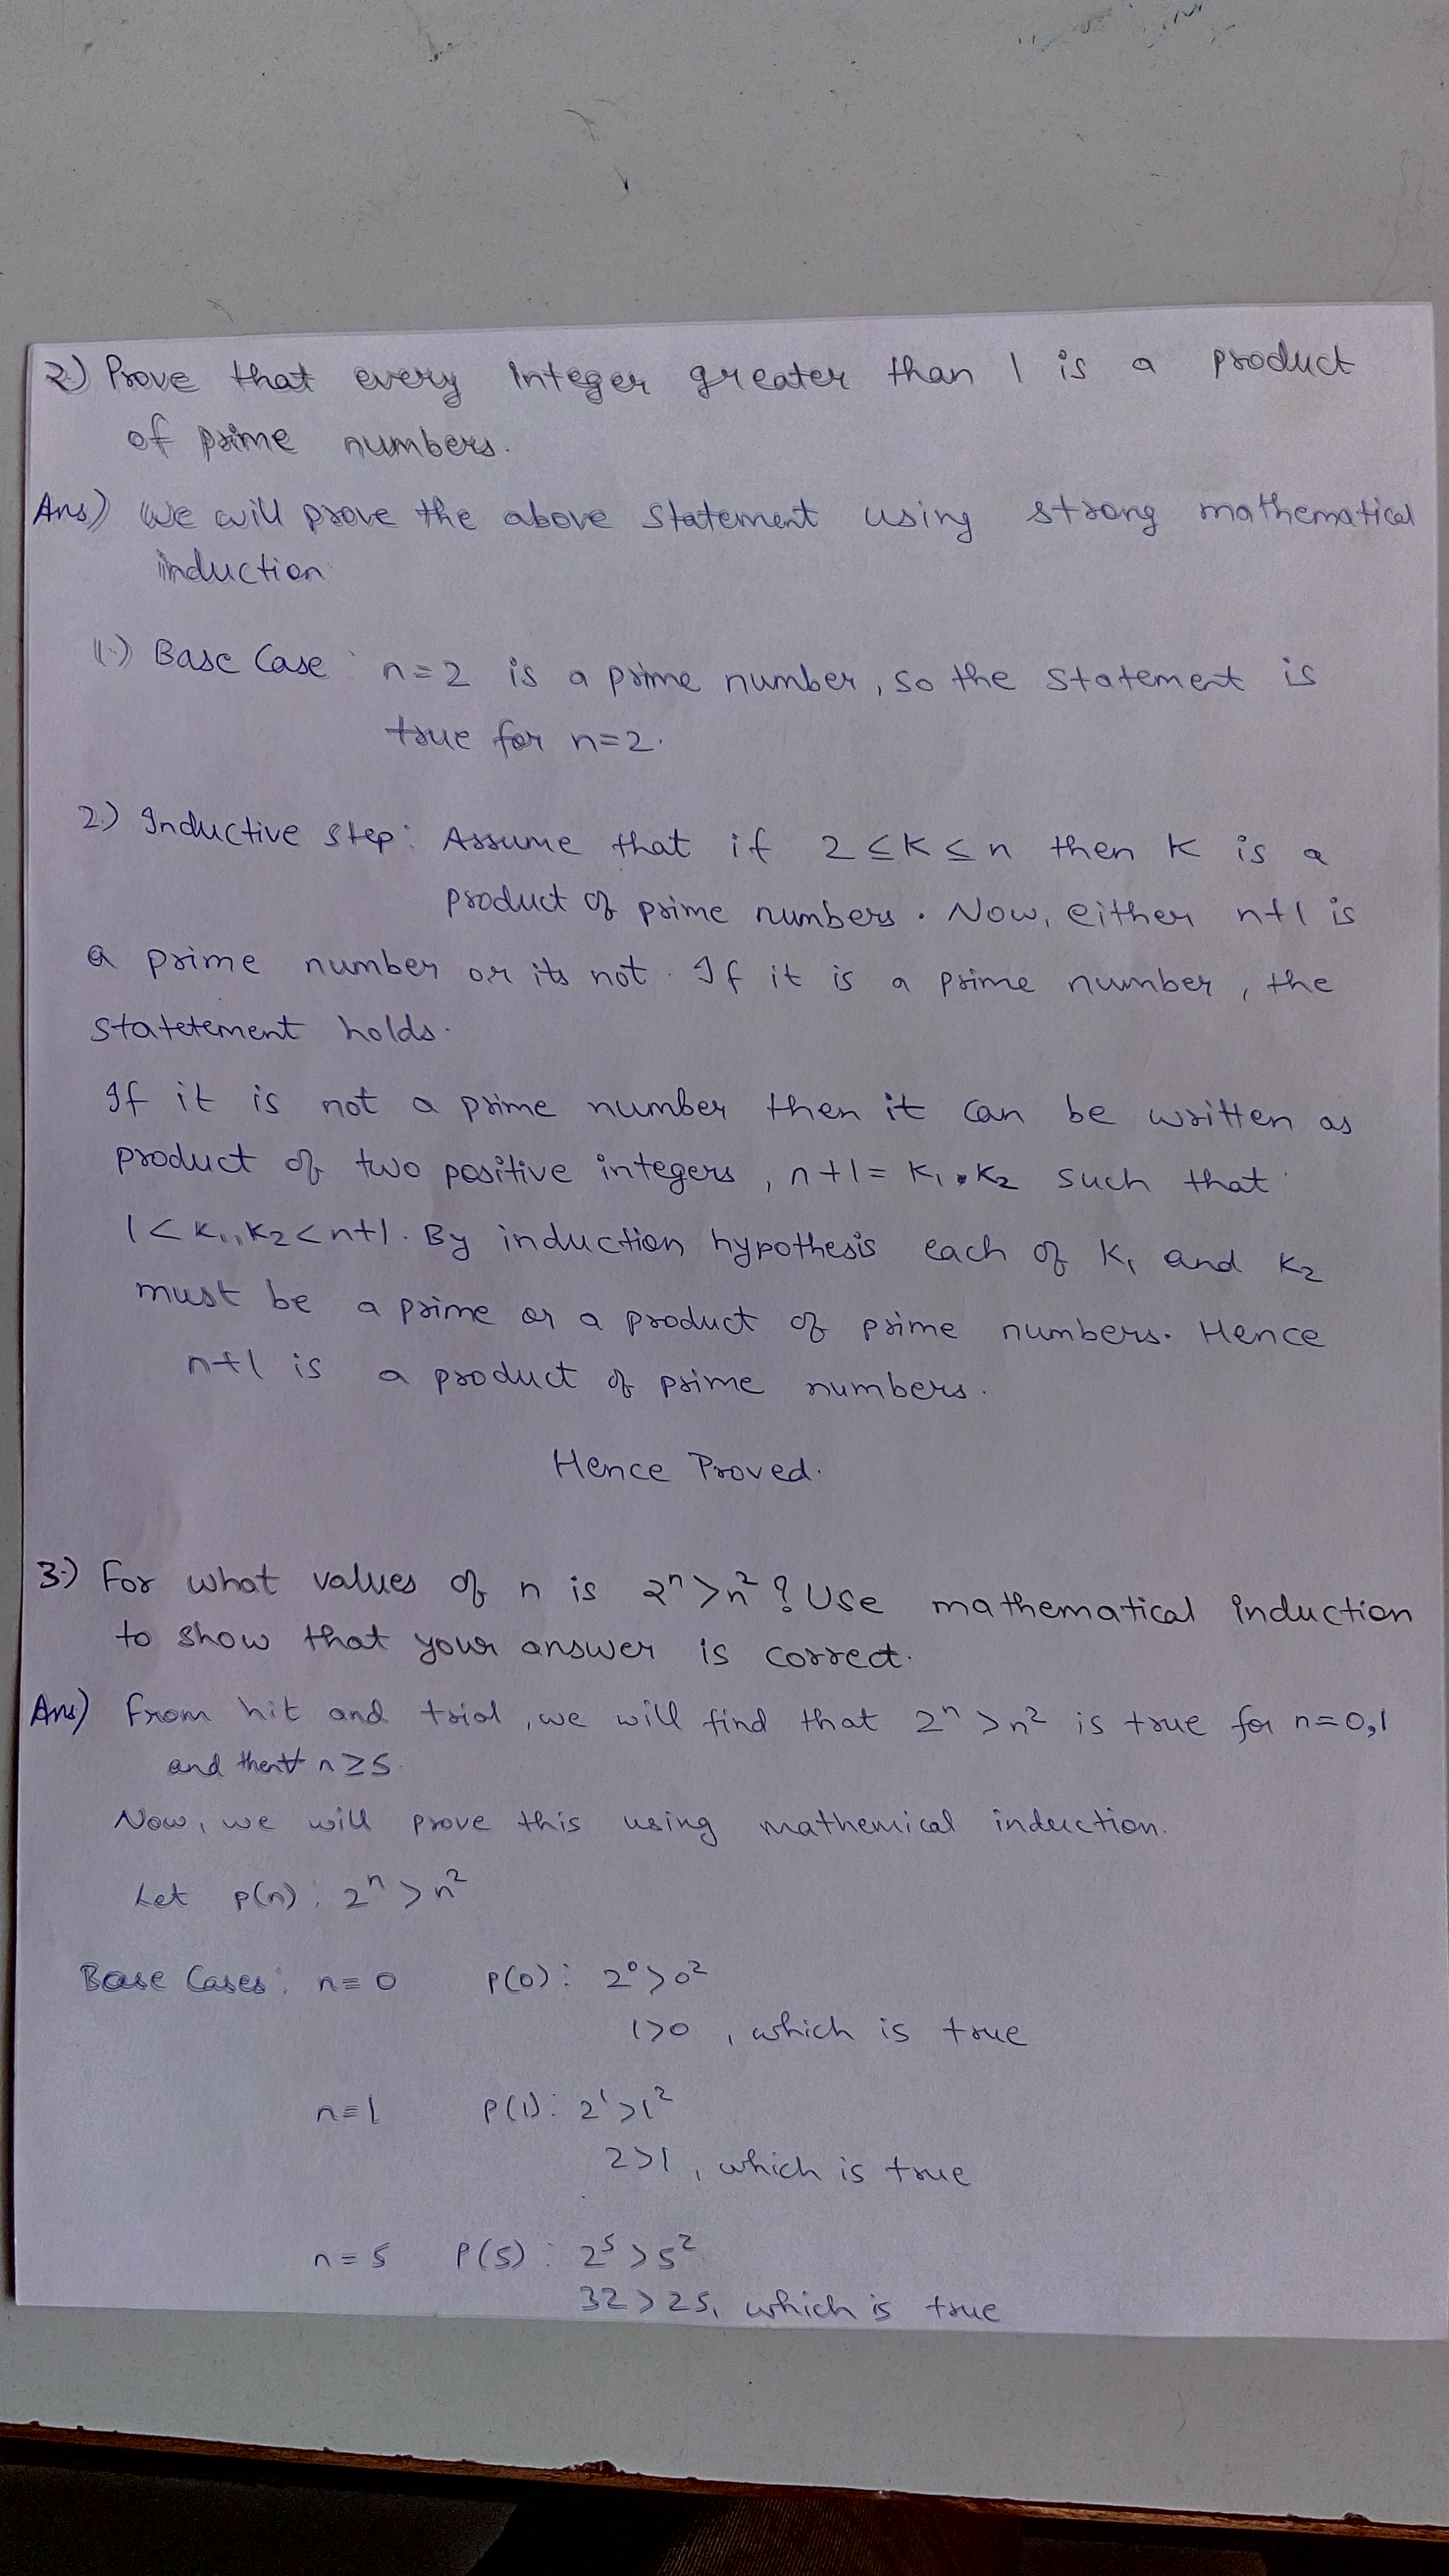 2.) Prove that every integer greater than 1 is a product
of prime numbers.
Ans) We will prove the above statement using strong mathematical
induction
1.) Base Case : n=2 is a prime number, so the statement is
true for n=2.
2.) Inductive step: Assume that if 2 ≤ K ≤ n then K is a
product of prime numbers. Now, either n+1 is
a prime number or its not. If it is a prime number, the
statetement holds.
If it is not a prime number then it can be written as
product of two positive integers, n+1 = K₁ • K₂ such that
1 < K₁, K₂ < n+1. By induction hypothesis each of K₁ and K₂
must be a prime or a product of prime numbers. Hence
n+1 is a product of prime numbers.
Hence Proved.
3.) For what values of n is 2ⁿ > n² ? Use mathematical induction
to show that your answer is correct.
Ans) From hit and trial, we will find that 2ⁿ > n² is true for n=0,1
and then ∀ n ≥ 5.
Now, we will prove this using mathemical induction.
Let p(n) : 2ⁿ > n²
Base Cases : n = 0 P(0) : 2⁰ > 0²
1>0 , which is true
n=1 P(1) : 2¹ > 1²
2>1 , which is true
n = 5 P(5) : 2⁵ > 5²
32 > 25, which is true